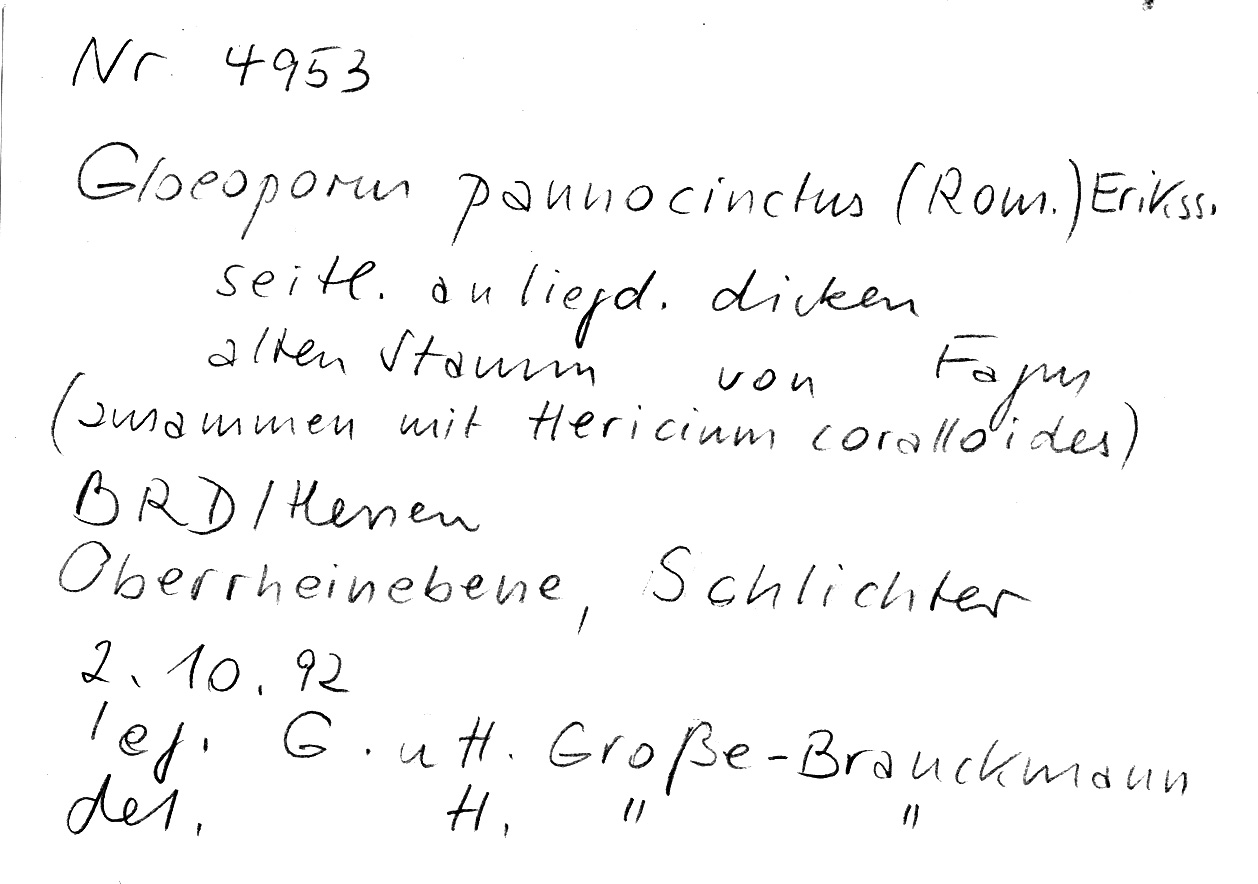 Nr. 4953
Gloeoporus pannocinctus (Rom.) Erikss.
seitl. an liegd. dicken
alten Stamm von Fagus
(zusammen mit Hericium coralloides)
BRD/Hessen
Oberrheinebene, Schlichter
2.10.92
leg. G. u H. Große-Brauckmann
det. H. " "